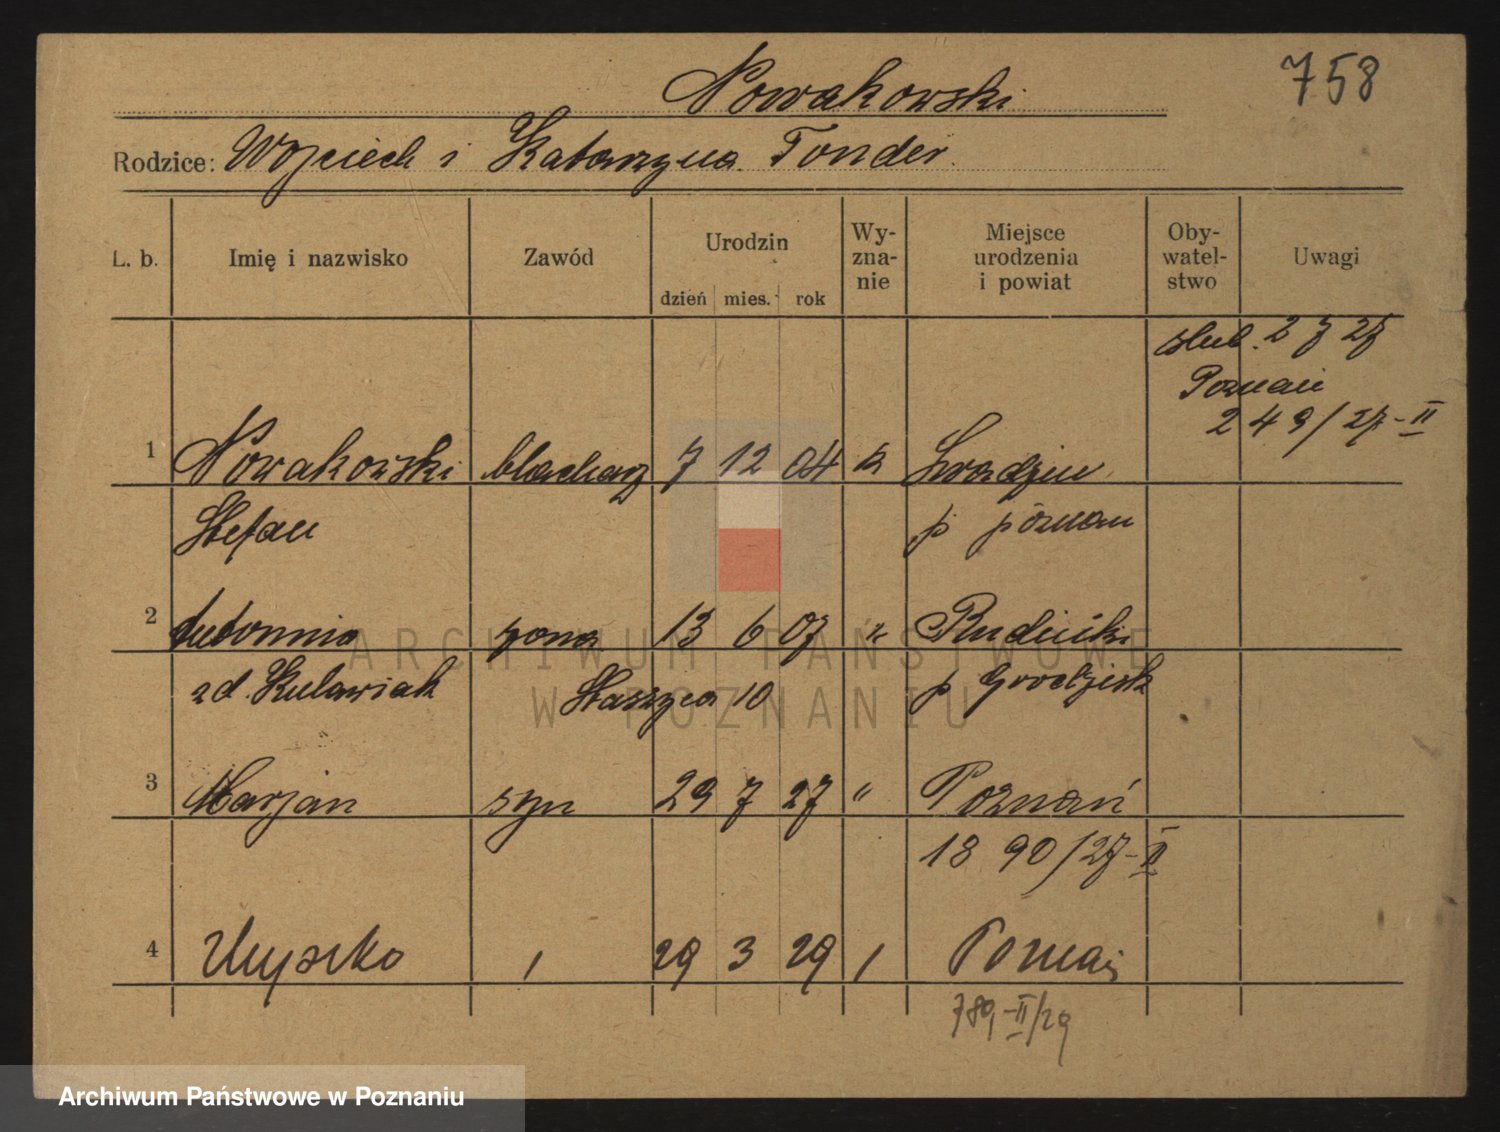 758
Nowakowski
Rodzice: Wojciech i Katarzyna Tonder.
L. b. Imię i nazwisko Zawód Urodzin dzień mies. rok Wy-zna-nie Miejsce urodzenia i powiat Oby-watel-stwo Uwagi
ślub. 2 7 27
Poznań
249/27-II
1 Nowakowski blacharz 7 12 04 k
Stefan p poznań
2 żona 13 6 07 "
zd. Kulawiak Staszyca 10 p Grodzisk
3 Marjan syn 29 7 27 " Poznań
1890/27-II
4 29 3 29 Poznań
789-II/29
ARCHIWUM PAŃSTWOWE
W POZNANIU
Archiwum Państwowe w Poznaniu